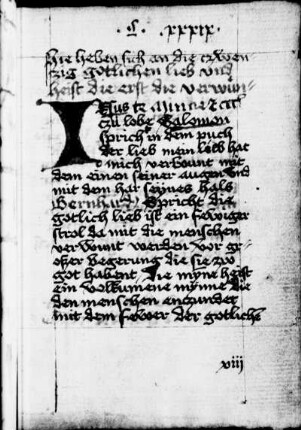 · C · xxxix ·
Hie heben sich an die czwen
zig gotlichen lieb vnd
heist die erst die verwun-
czu lobe Salomon
sprich in dem puch
der lieb mein lieb hat
mich verwunt mit
dem einen seiner augen vnd
mit dem har seines hals
Bernhardus Spricht die
gotlich lieb ist ein fewriger
strol da mit die menschen
verwunt werden vor gr-
osser begerung die sie zw
got habent Die myne heist
ein volkumene mynne die
den menschen enzundet
mit dem fewer der gotliche
viii